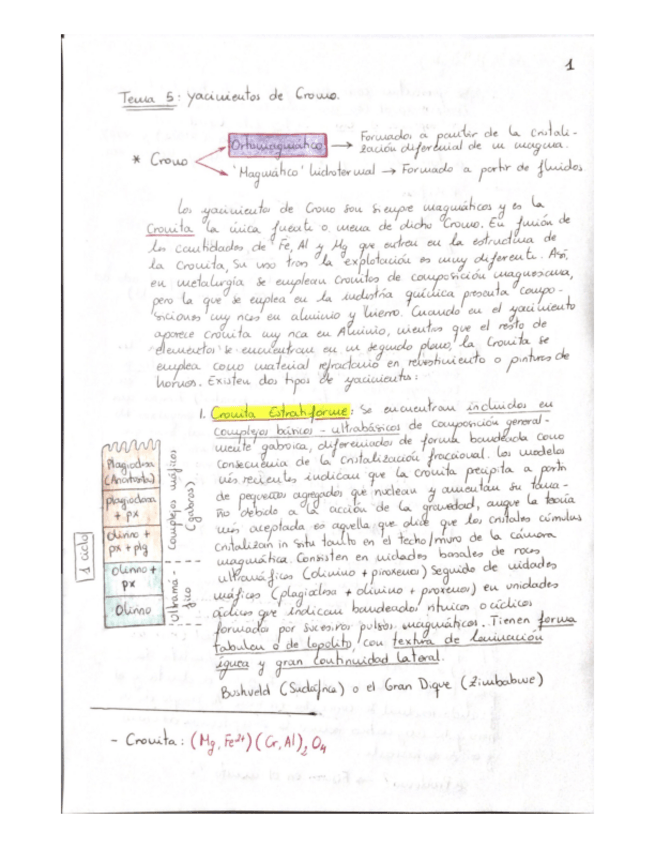 1
Tema 5: Yacimientos de Cromo.
* Cromo
Ortomagmático → Formados a partir de la cristali-
zación diferencial de un magma.
'Magmático' hidrotermal → Formado a partir de fluidos
Los yacimientos de Cromo son siempre magmáticos y es la
Cromita la única fuente o mena de dicho Cromo. En función de
las cantidades de Fe, Al y Mg que entran en la estructura de
la Cromita, su uso tras la explotación es muy diferente. Así,
en metalurgia se emplean cromitas de composición magnesiana,
pero la que se emplea en la industria química presenta compo-
siciones muy ricas en aluminio y hierro. Cuando en el yacimiento
aparece cromita muy rica en Aluminio, mientras que el resto de
elementos se encuentran en un segundo plano, la Cromita se
emplea como material refractario en revestimiento o pinturas de
hornos. Existen dos tipos de yacimientos:
1. Cromita Estratiforme: Se encuentran incluidos en
complejos básicos - ultrabásicos de composición general-
mente gabroica, diferenciados de forma bandeada como
consecuencia de la cristalización fraccional. Los modelos
más recientes indican que la cromita precipita a partir
de pequeños agregados que nuclean y aumentan su tama-
ño debido a la acción de la gravedad, aunque la teoría
más aceptada es aquella que dice que los cristales cúmulus
cristalizan in situ tanto en el techo/muro de la cámara
magmática. Consisten en unidades basales de rocas
ultramáficas (olivino + piroxenos) seguido de unidades
máficas (plagioclasa + olivino + piroxenos) en unidades
cíclicas que indican bandeados rítmicos o cíclicos
formados por sucesivos pulsos magmáticos. Tienen forma
tabular o de lopolito, con textura de laminación
ígnea y gran continuidad lateral.
Bushveld (Sudáfrica) o el Gran Dique (Zimbabwe)
1 ciclo
Plagioclasa
(Anortosita)
plagioclasa
+ px
Olivino +
px + plg
Olivino +
px
Olivino
Complejos máficos
(gabros)
Ultramá-
fico
- Cromita: (Mg, Fe²⁺)(Cr, Al)₂O₄